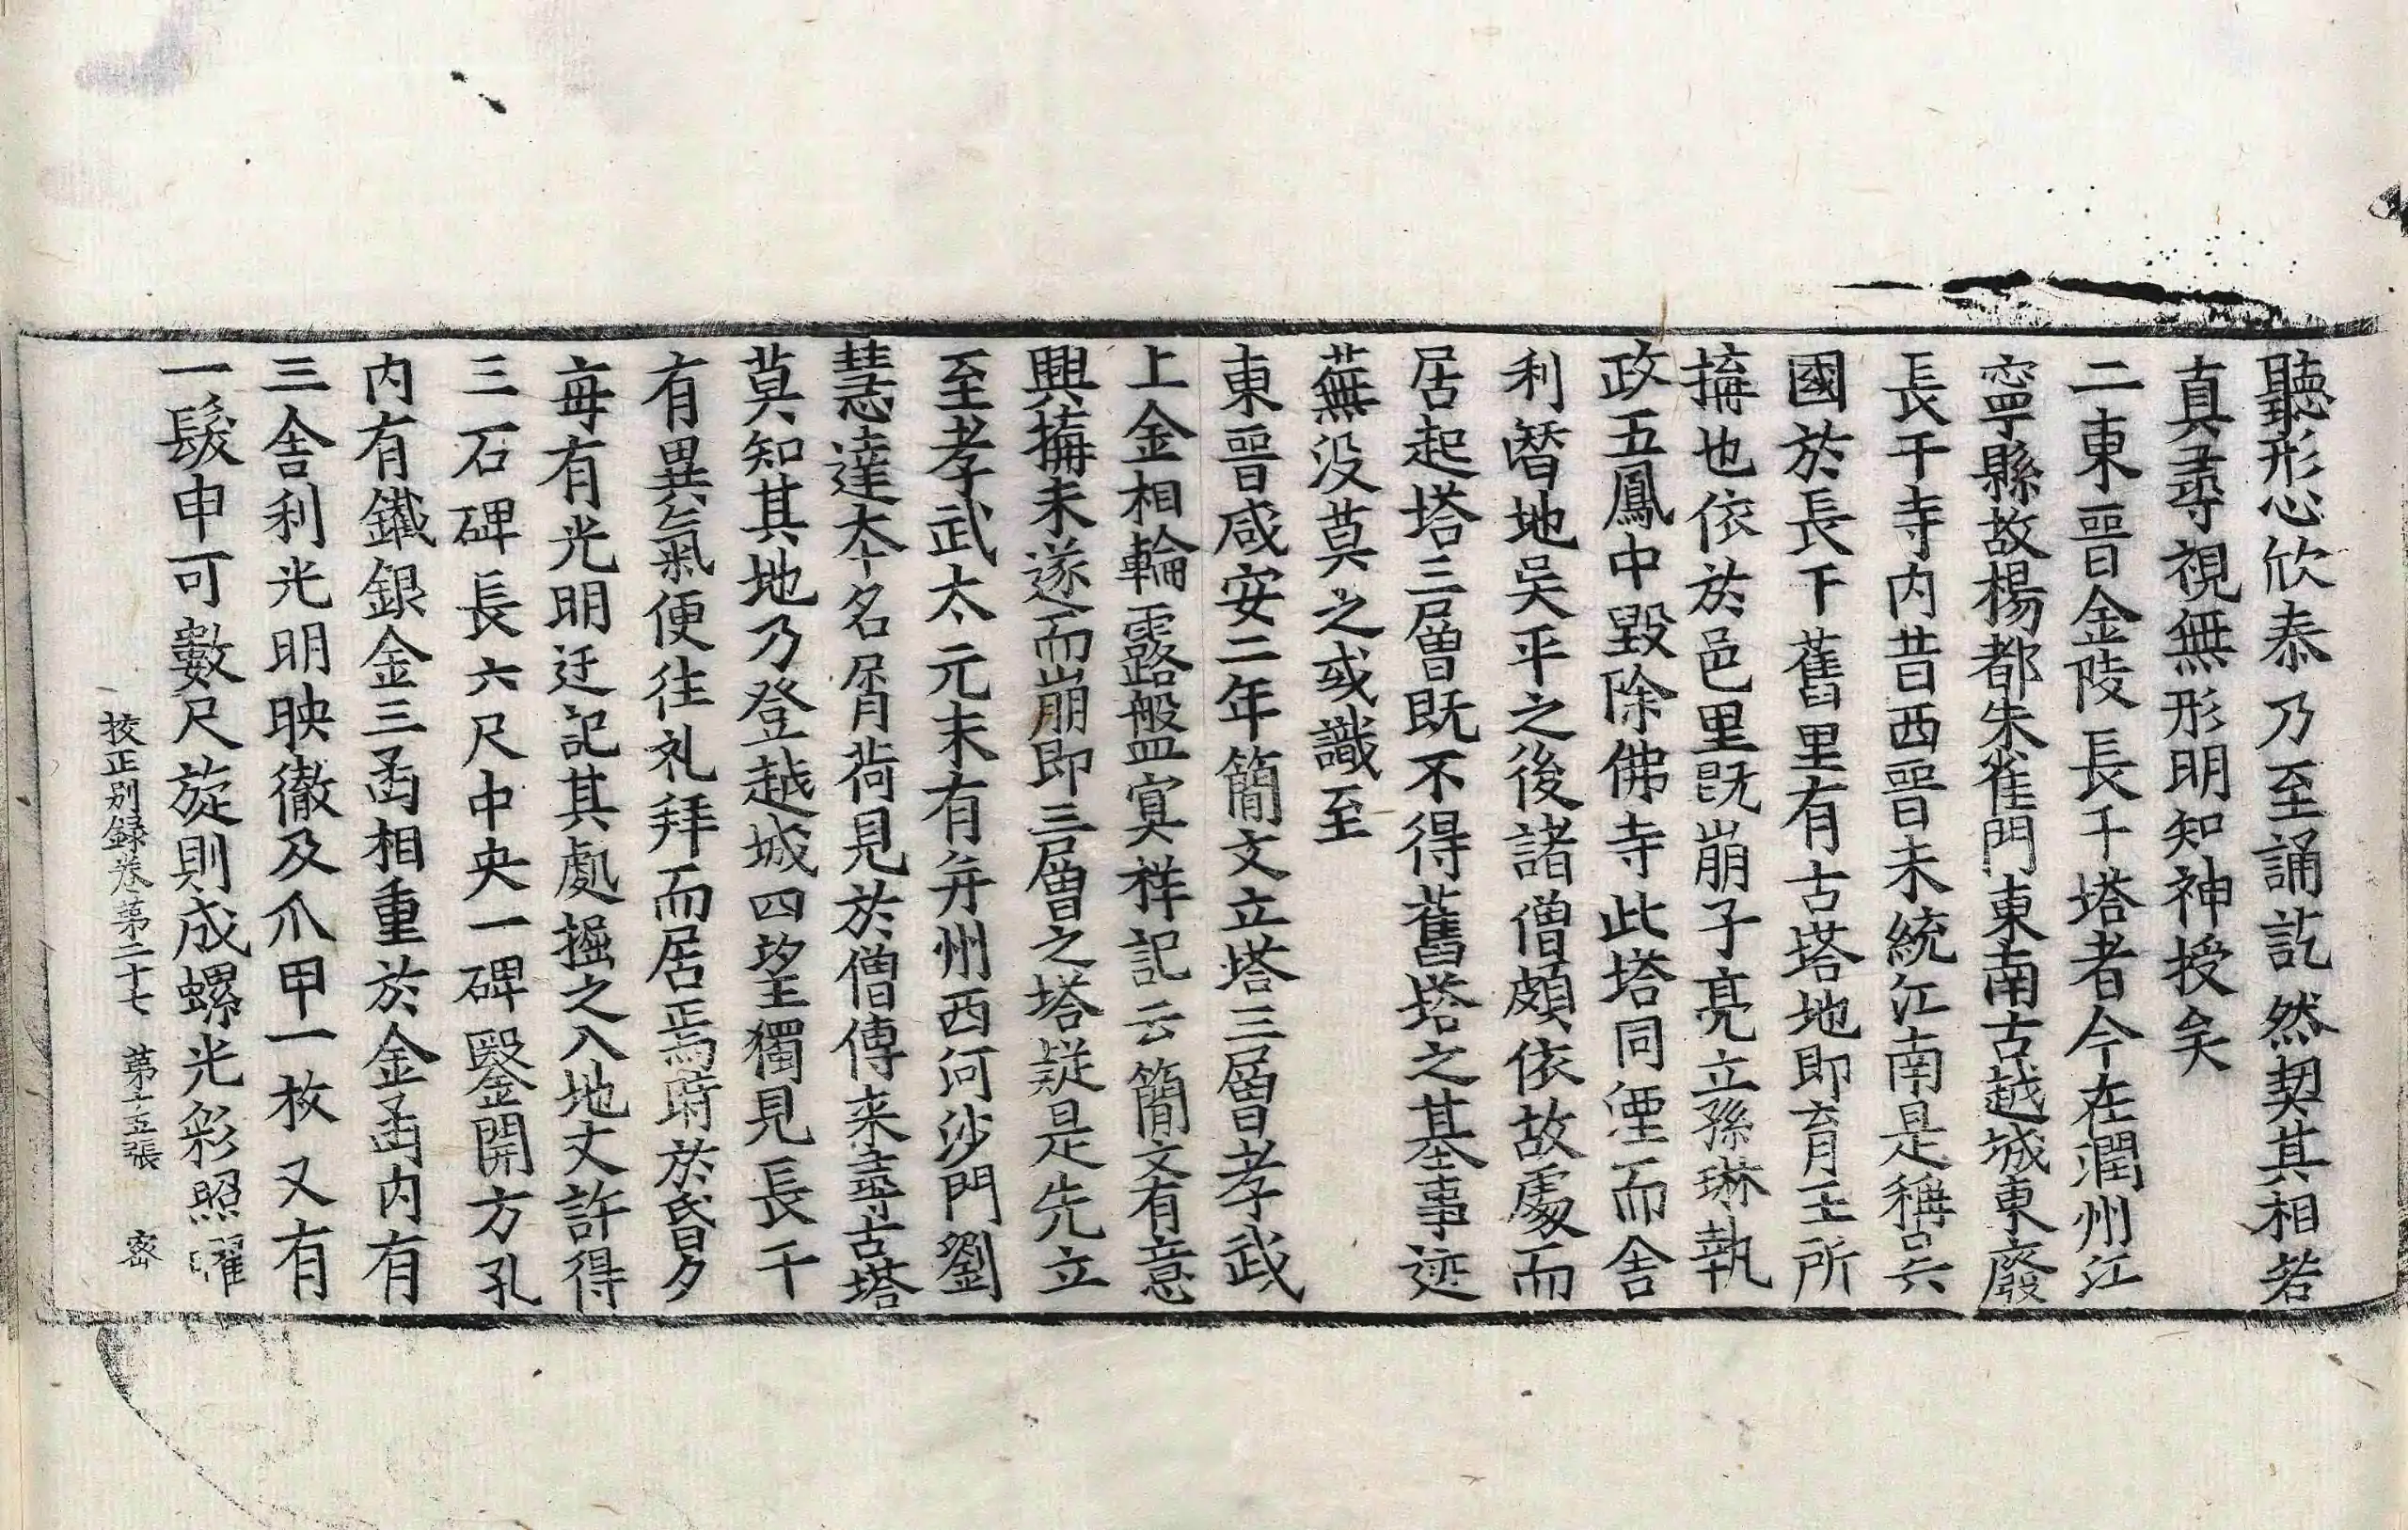 聽形心欣泰乃至誦訖然契其相若
真尋視無形明知神授矣
二東晉金陵長千塔者今在潤州江
寧縣故楊都朱雀門東南古越城東廢
長千寺內昔西晉未統江南是稱吳
國於長干舊里有古塔地即育王所
搆也依於邑里既崩子亮立孫琳執
政五鳳中毀除佛寺此塔同湮而舍
利晵地吳平之後諸僧頗依故處而
居起塔三層既不得舊塔之基事迹
蕪没莫之或識至
東晉咸安二年簡文立塔三層孝武
上金相輪露盤冥祥記云簡文有意
興搆未遂而崩即三層之塔疑是先立
至孝武太元末有并州西河沙門劉
慧達夲名屑荷見於僧傳来尋古塔
莫知其地乃登越城四望獨見長千
有異氣便往礼拜而居焉時於昏夕
每有光明迂記其處掘之入地丈許得
三石碑長六尺中央一碑鑿開方孔
內有鐵銀金三函相重於金函內有
三舍利光明映徹及爪甲一枚又有
一髮申可數尺旋則成螺光彩照曜
挍正別録卷第二十七　第十五張　密